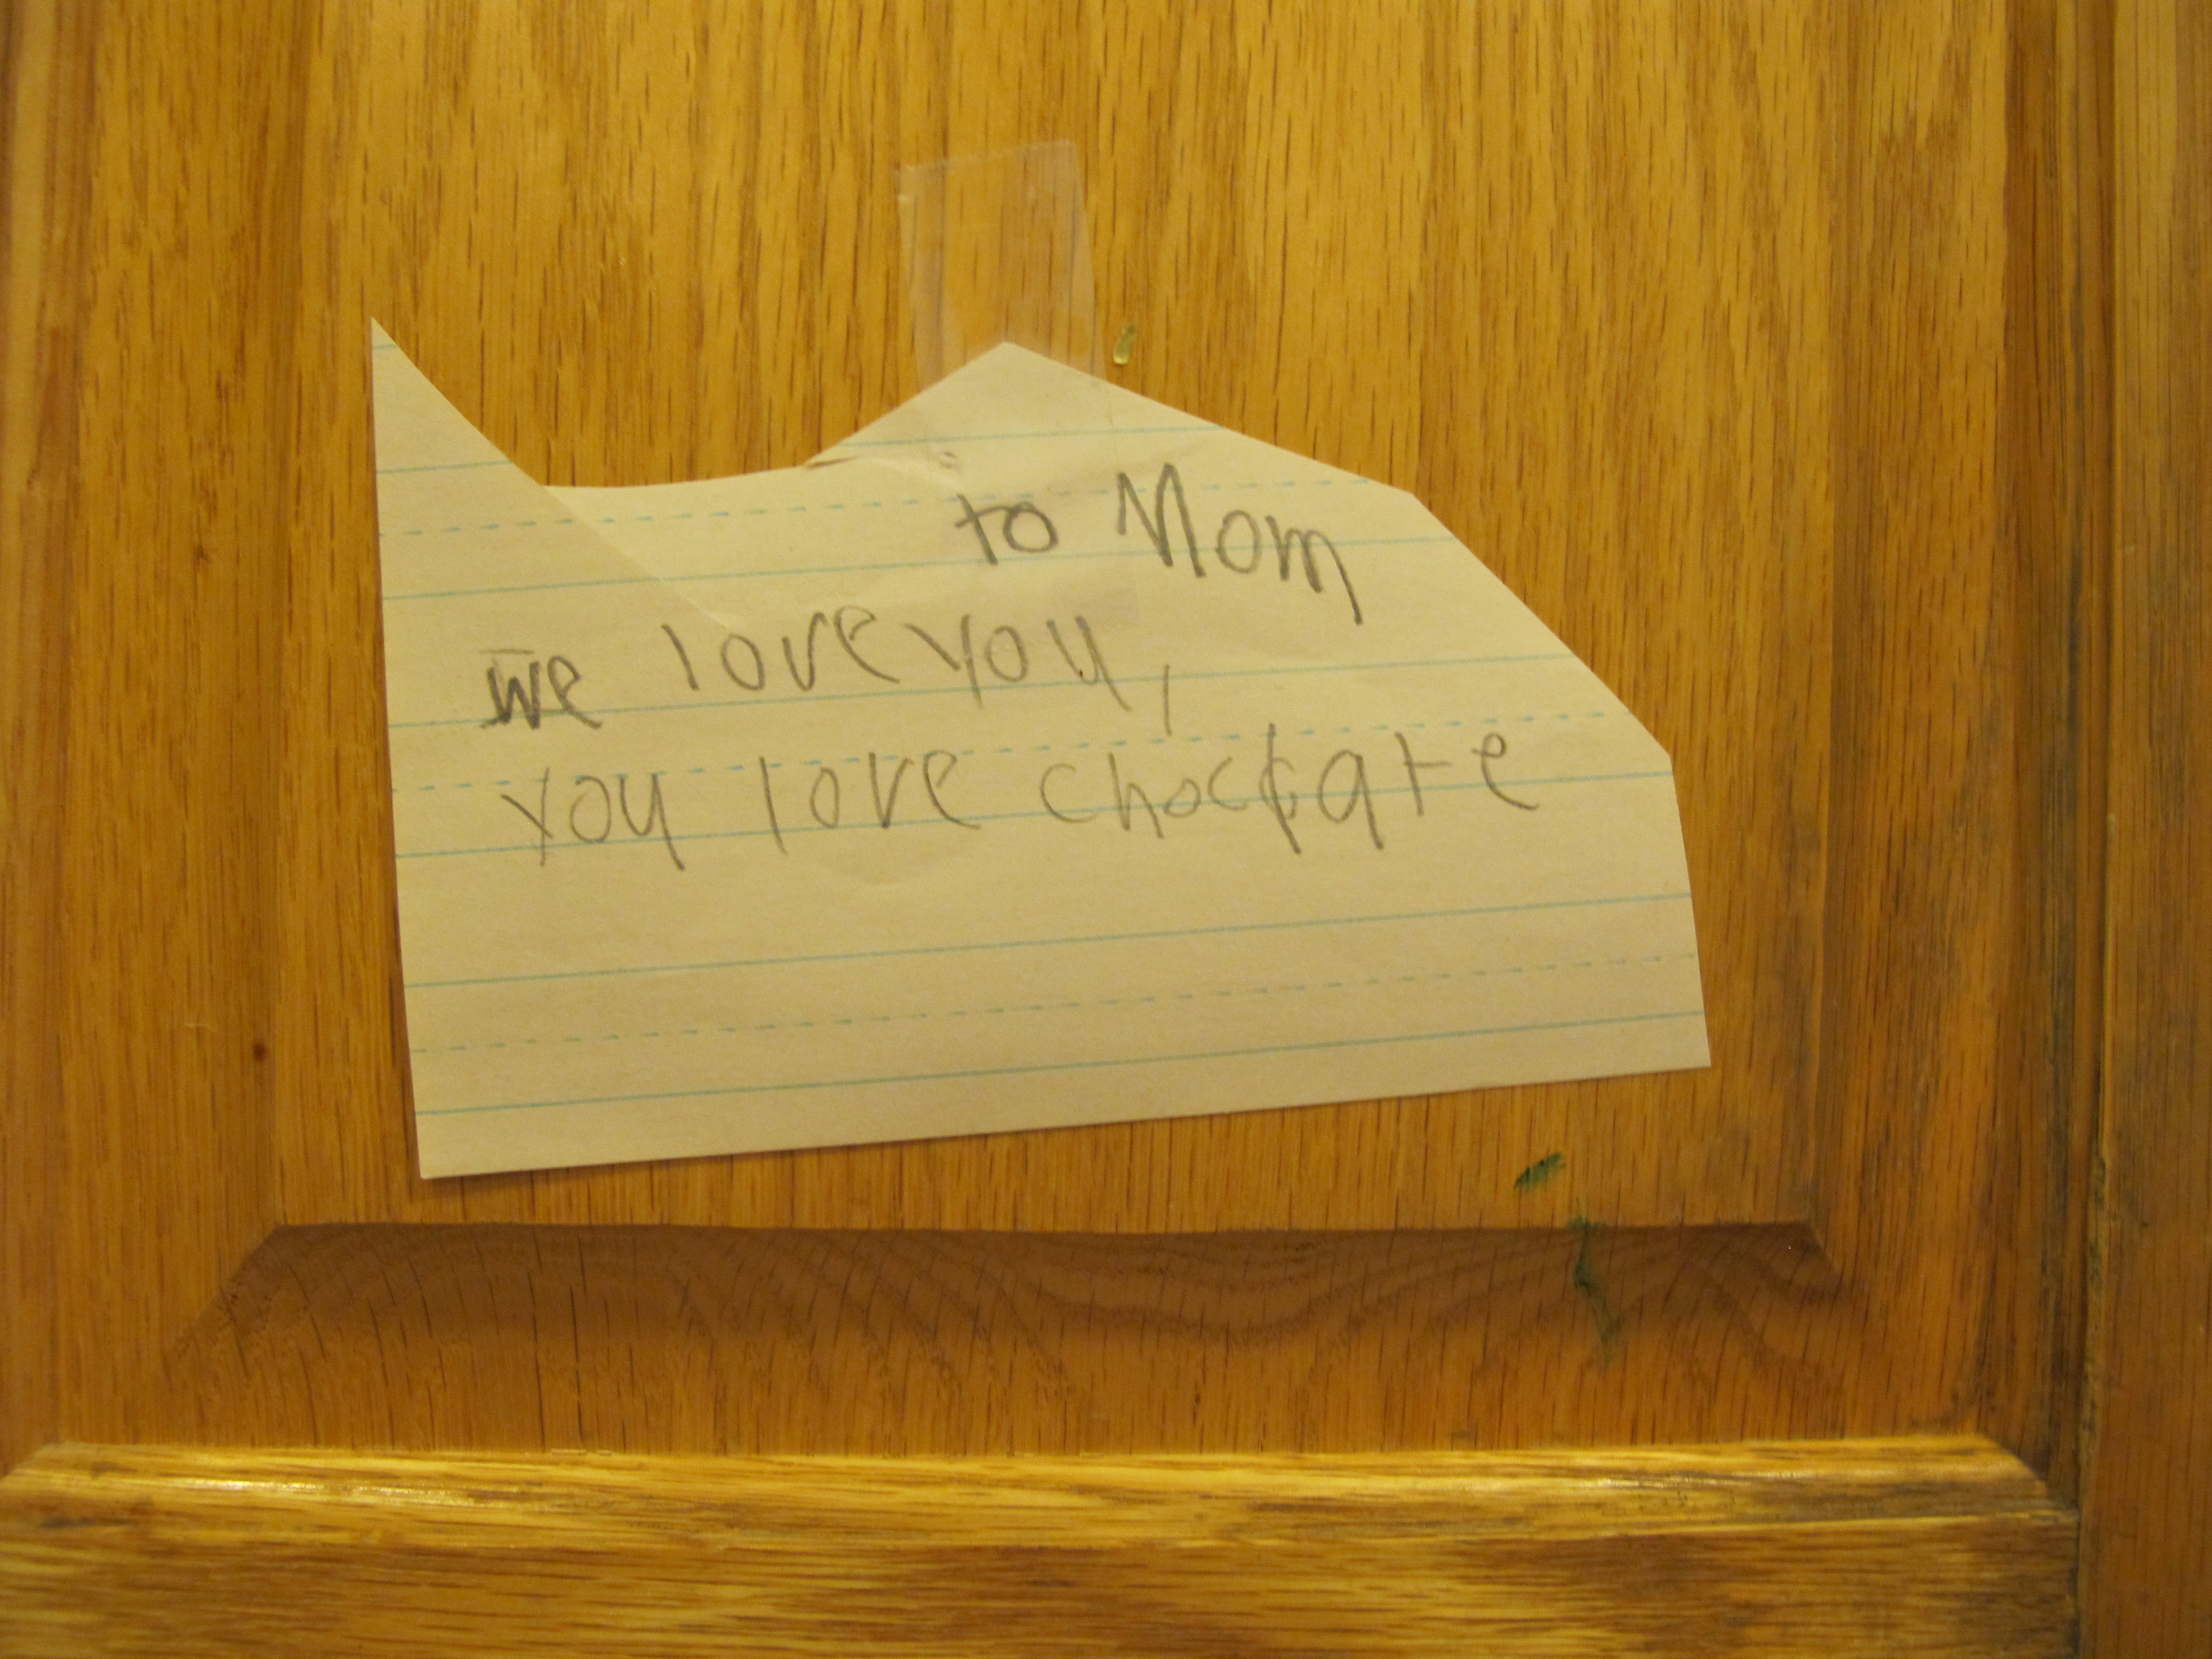 to Mom
we love you,
you love choclate